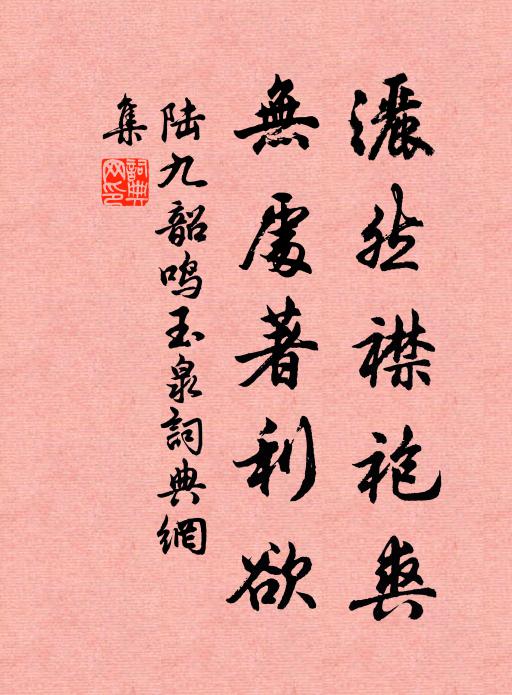 灑然襟袍爽
無處著利欲
陆九韶鸣玉泉詞典網
集
詞典网印